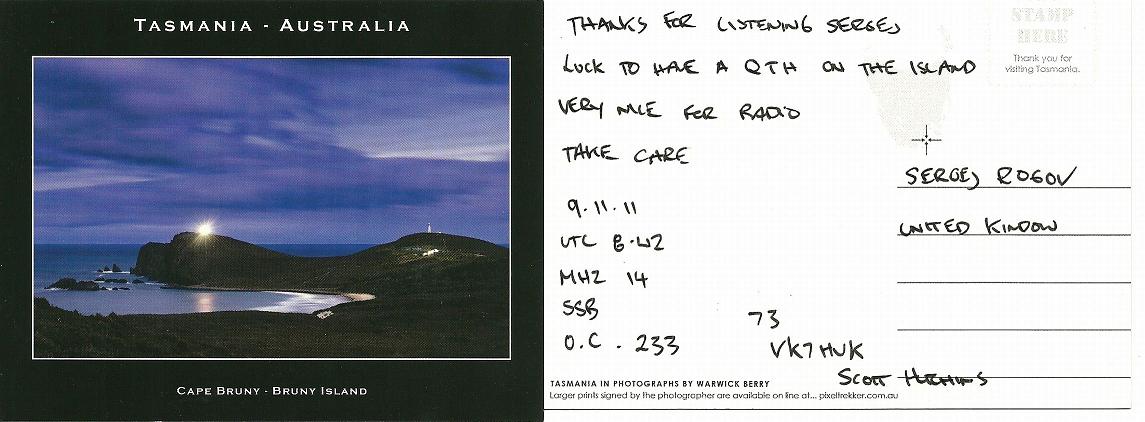 TASMANIA - AUSTRALIA
CAPE BRUNY - BRUNY ISLAND
THANKS FOR LISTENING SERGEJ
LUCK TO HAVE A QTH ON THE ISLAND
VERY NICE FOR RADIO
TAKE CARE
9.11.11
UTC 8.42
MHZ 14
SSB
O.C. 233
73
VK7HUK
SCOTT
STAMP
HERE
Thank you for
visiting Tasmania.
SERGEJ ROGOV
UNITED KINDOW
TASMANIA IN PHOTOGRAPHS BY WARWICK BERRY
Larger prints signed by the photographer are available on line at... pixeltrekker.com.au